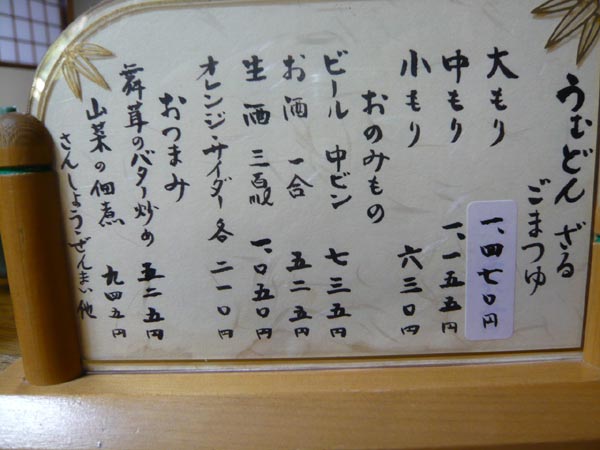 うむどん ざる
ごまつゆ
大もり 一、四七〇円
中もり 一、一五五円
小もり 六三〇円
おのみもの
ビール 中ビン 七三五円
お酒 一合 五二五円
生酒 三百㎖ 一、〇五〇円
オレンジ・サイダー各 二一〇円
おつまみ
舞茸のバター炒め 五二五円
山菜の佃煮 九四五円
さんしょう・ぜんまい他